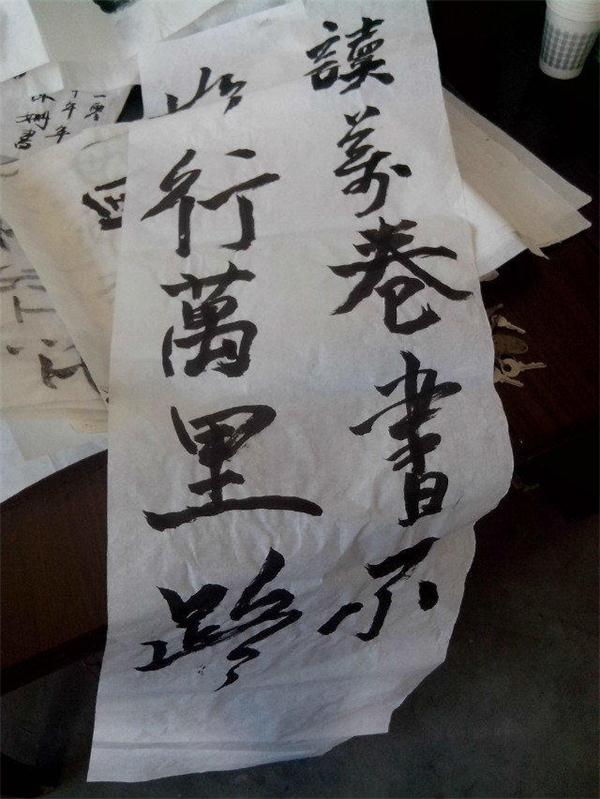 讀萬卷書不
行萬里路